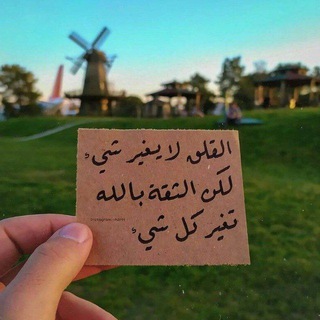 القلق لا يغير شيء
لكن الثقة بالله
تغير كل شيء